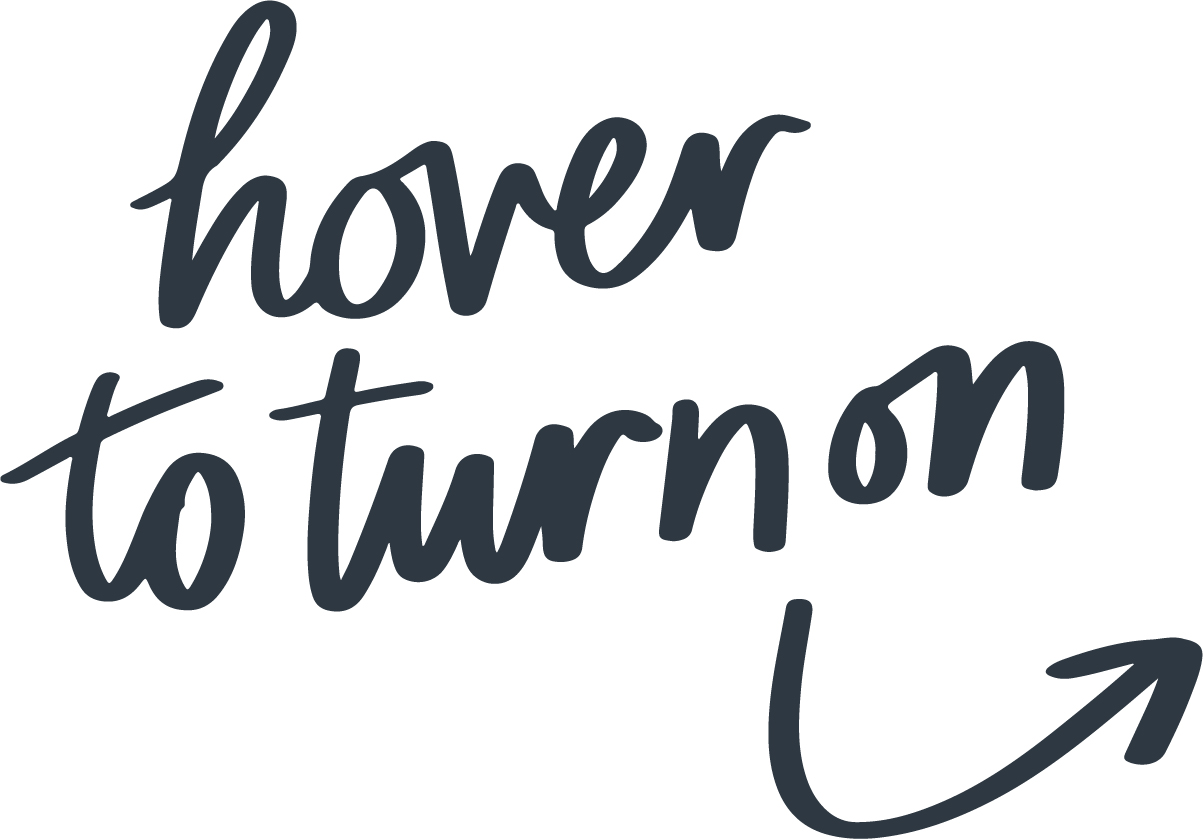 hover
to turn on